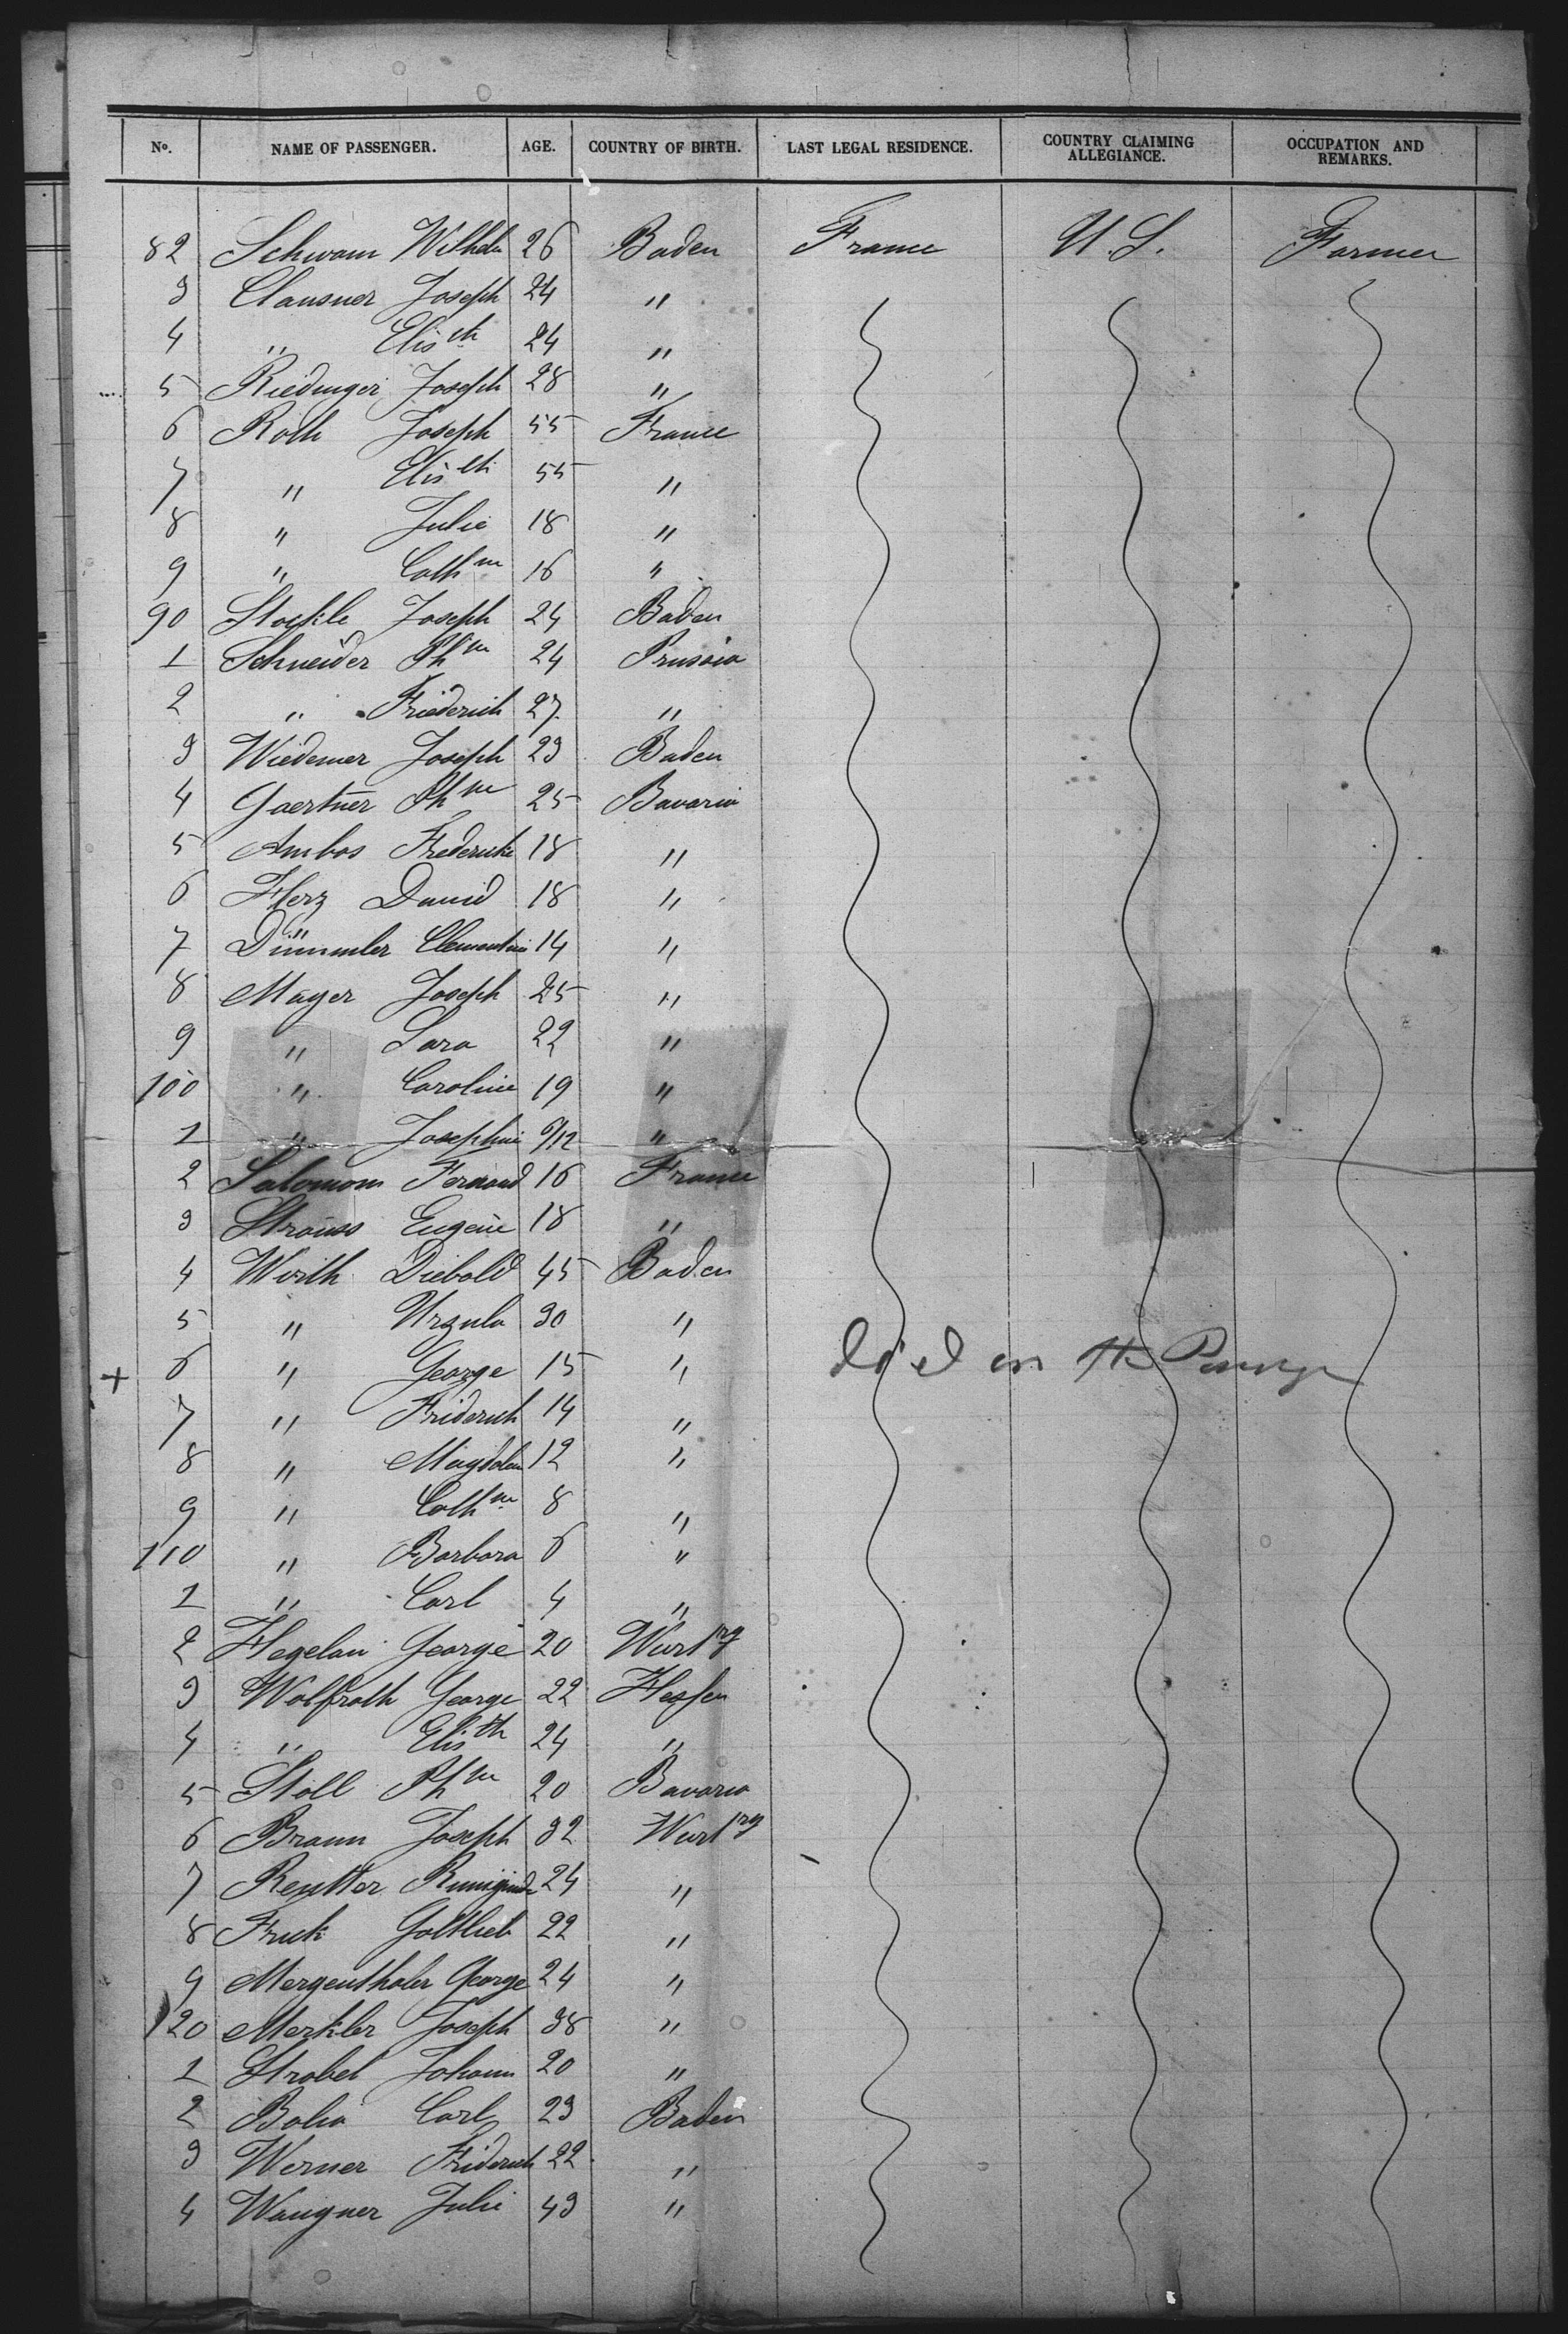 No. NAME OF PASSENGER. AGE. COUNTRY OF BIRTH. LAST LEGAL RESIDENCE. COUNTRY CLAIMING ALLEGIANCE. OCCUPATION AND REMARKS.
82 Schwam Wilhelm 26 Baden France U. S. Farmer
3 Clausner Joseph 24 "
4 " Elis eth 24 "
5 Riedinger Joseph 28 "
6 Roth Joseph 55 France
7 " Elis eth 55 "
8 " Julie 18 "
9 " Cath ne 16 "
90 Stoekle Joseph 24 Baden
1 Schneider Ph ne 24 Prussia
2 " Friederich 27 "
3 Wiedemer Joseph 23 Baden
4 Gaertner Ph ne 25 Bavaria
5 Ambos Frederike 18 "
6 Herz David 18 "
7 Dümmler Clementine 14 "
8 Mayer Joseph 25 "
9 " Sara 22 "
100 " Caroline 19 "
1 " Josephine 6/12 "
2 Salomon Fernand 16 France
3 Strauss Eugene 18 "
4 Wirth Diebold 45 Baden
5 " Urzula 30 "
+ 6 " George 15 " died on the Passage
7 " Friderich 14 "
8 " Magdalen 12 "
9 " Cath ne 8 "
110 " Barbara 6 "
1 " Carl 4 "
2 Hegelau George 20 Wurt rg
3 Wolfrath George 22 Hessen
4 " Elis th 24 "
5 Stoll Ph ne 20 Bavaria
6 Braun Joseph 32 Wurt rg
7 Reutter 24 "
8 Frick Gottlieb 22 "
9 Mergenthaler George 24 "
120 Merkler Joseph 38 "
1 Strobel Johann 20 "
2 Bolia Carl 23 Baden
3 Werner Friderich 22 "
4 Waugner Julie 43 "